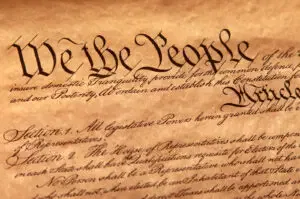 We the People of the
insure domestic Tranquility, provide for the common defence, p
and our Posterity, do ordain and establish this Constitution f
Article
Section 1. All legislative Powers herein granted shall be
of Representatives.
Section 2. The House of Representatives shall be compos
in each State shall have the Qualifications requisite for Electors of the
No Person shall be a Representative who shall not hav